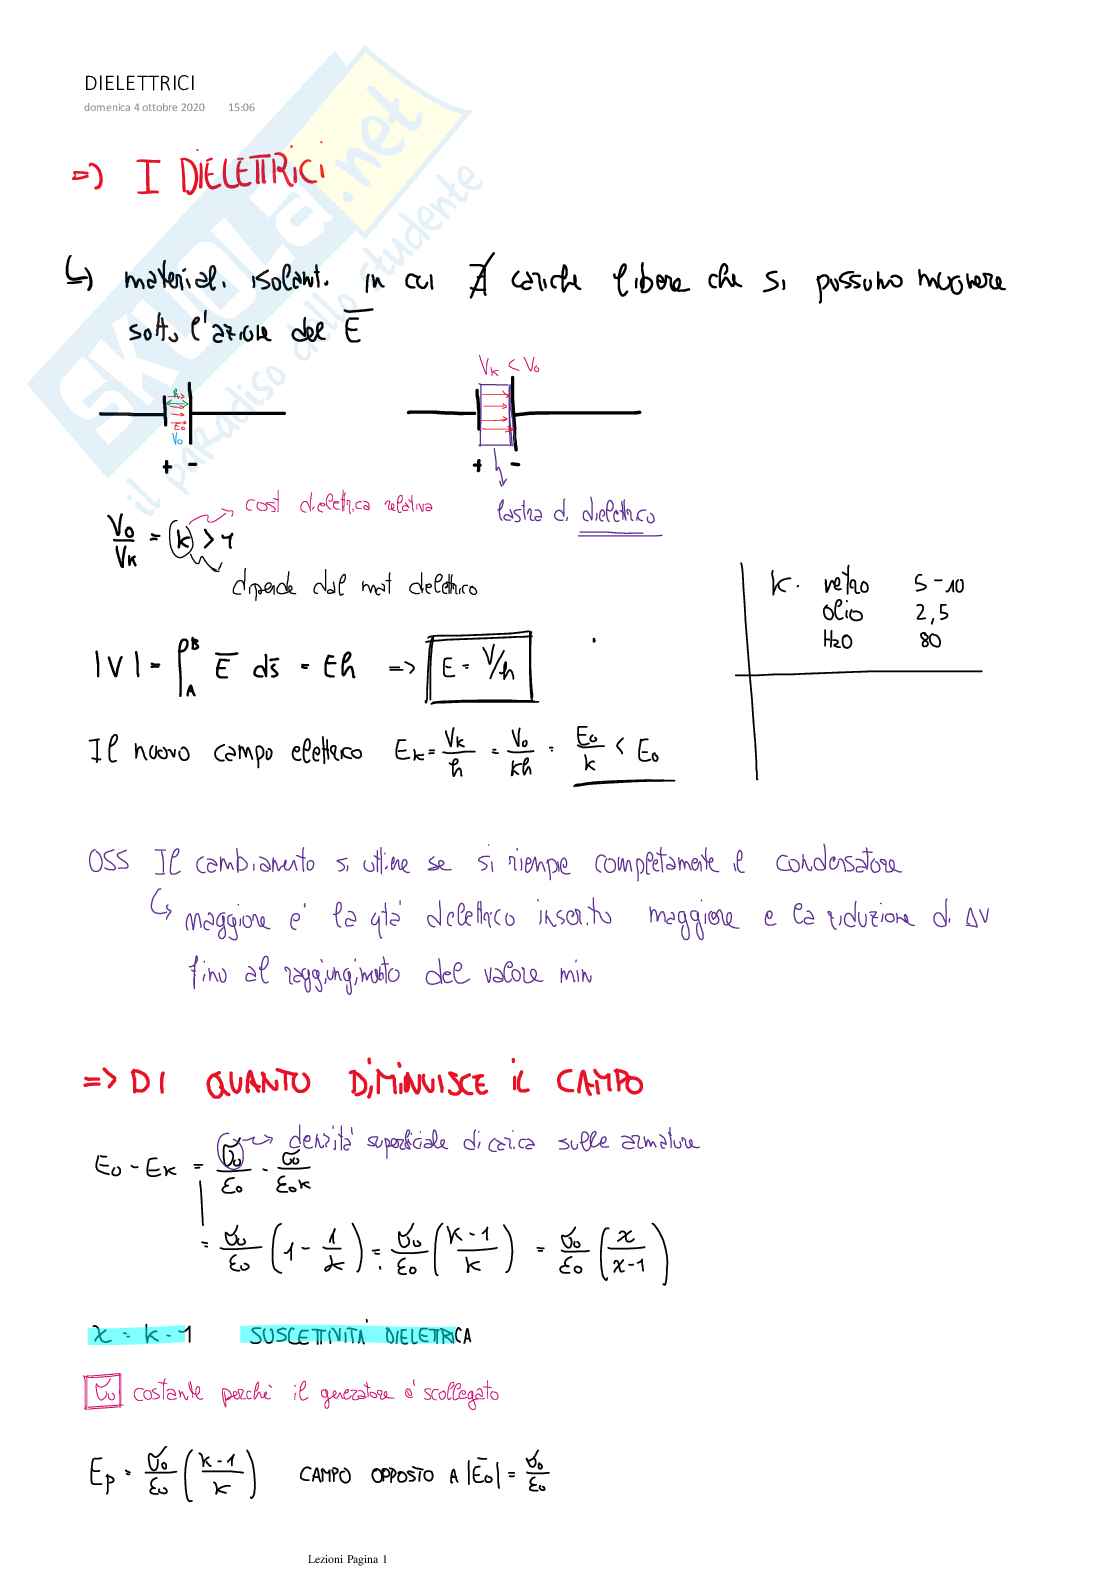 DIELETTRICI
domenica 4 ottobre 2020 15:06
SKUOLA.net
il paradiso dello studente
=> I DIELETTRICI
↳ materiali isolanti in cui ∄ cariche libere che si possono muovere
sotto l'azione del E̅
h
E̅₀
V₀
+ -
Vₖ < V₀
+ -
lastra di dielettrico
V₀/Vₖ = k > 1
cost dielettrica relativa
dipende dal mat dielettrico
k. vetro 5-10
olio 2,5
H₂O 80
|V| = ∫_A^B E̅ ds̅ = Eh => E = V/h
Il nuovo campo elettrico Eₖ = Vₖ/h = V₀/kh = E₀/k < E₀
OSS Il cambiamento si ottiene se si riempie completamente il condensatore
↳ maggiore è la qtà dielettrico inserito maggiore e la riduzione di ΔV
fino al raggiungimento del valore min
=> DI QUANTO DIMINUISCE IL CAMPO
densità superficiale di carica sulle armature
E₀ - Eₖ = σ₀/ε₀ - σ₀/ε₀k
= σ₀/ε₀ (1 - 1/k) = σ₀/ε₀ (k-1/k) = σ₀/ε₀ (χ/χ-1)
χ = k-1 SUSCETTIVITÀ DIELETTRICA
σ₀ costante perchè il generatore è scollegato
Eₚ = σ₀/ε₀ (k-1/k) CAMPO OPPOSTO A |E̅₀| = σ₀/ε₀
Lezioni Pagina 1